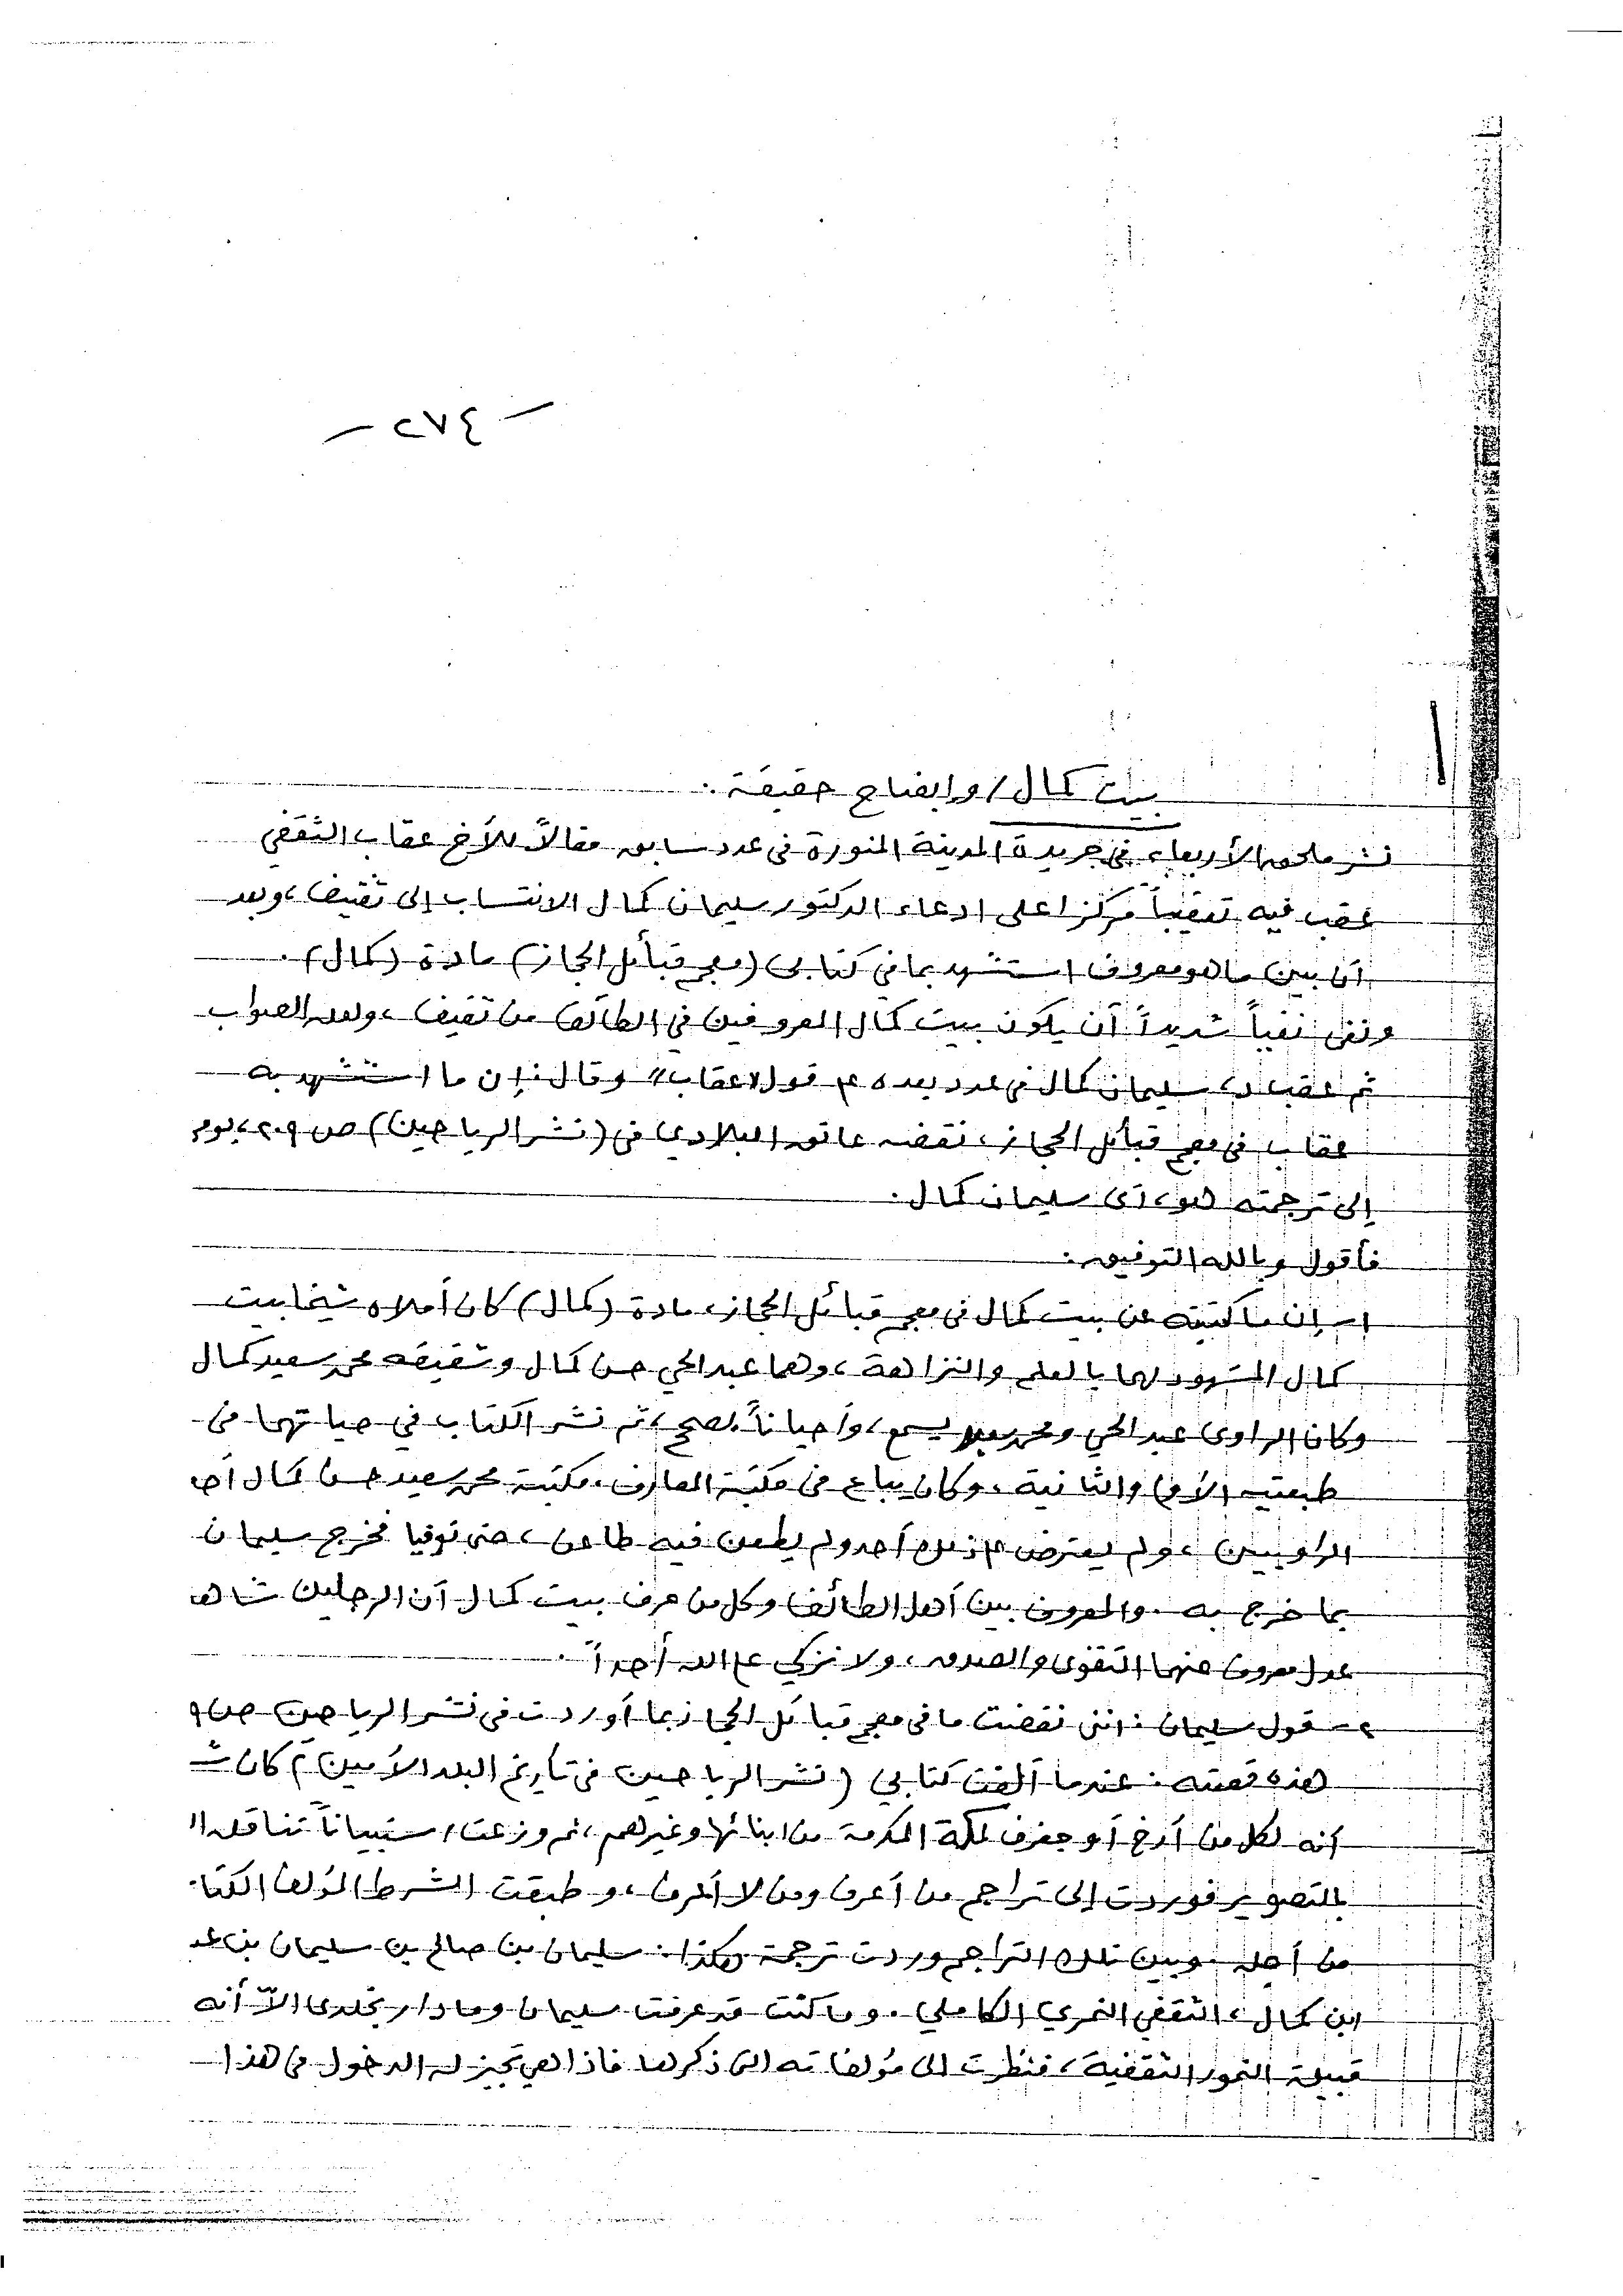 - ٢٧٤ -
بيت كمال / وإيضاح حقيقة :
نشر ملحق الأربعاء في جريدة المدينة المنورة في عدد سابق مقالاً للأخ عقاب الثقفي
عقب فيه تعقيباً مركزا على ادعاء الدكتور سليمان كمال الانتساب إلى ثقيف ، وبعد
أن بين ما هو معروف استشهد بما في كتابي (معجم قبائل الحجاز) مادة (كمال) .
ونفى نفياً شديداً أن يكون بيت كمال المعروفين في الطائف من ثقيف ، ولعله الصواب
ثم عقب د، سليمان كمال في عدد بعده على قول «عقاب» وقال : إن ما استشهد به
عقاب في معجم قبائل الحجاز ، نقضه عاتق البلادي في (نشر الرياحين) ص ٢٠٩ ، يوم
إلى ترجمته هو ، أى سليمان كمال .
فأقول وبالله التوفيق :
١- إن ما كتبته عن بيت كمال في معجم قبائل الحجاز ، مادة (كمال) كان أملاه شيخا بيت
كمال المشهود لهما بالعلم والنزاهة ، وهما عبد الحي حسن كمال وشقيقه محمد سعيد كمال
وكان الراوى عبد الحي ومحمد سعيد يسمع ، وأحياناً يصحح ، ثم نشر الكتاب في حياتهما في
طبعتيه الأولى والثانية ، وكان يباع في مكتبة المعارف ، مكتبة محمد سعيد حسن كمال أحـ
الراويين ، ولم يعترض على ذلك أحد ولم يطعن فيه طاعن ، حتى توفيا فخرج سليمان
بما خرج به . والمعروف بين أهل الطائف وكل من عرف بيت كمال أن الرجلين شاهـ
عدل معروف عنهما التقوى والصدق ، ولا نزكي على الله أحداً .
٢- قول سليمان : انني نقضت ما في معجم قبائل الحجاز بما أوردت في نشر الرياحين ص ٩
هذه قصته : عندما ألفت كتابي (نشر الرياحين في تأريخ البلد الأمين) كان شـ
أنه لكل من أرخ أو جغرف لمكة المكرمة من ابنائها وغيرهم ، ثم وزعت استبياناً تناقله ا
بالتصوير فوردت إلى تراجم من أعرف ومن لا أعرف ، وطبقت الشرط المؤلف الكتا
من أجله . وبين تلك التراجم وردت ترجمة هكذا : سليمان بن صالح بن سليمان بن عبـ
ابن كمال ، الثقفي النمري الكاملي . وما كنت قد عرفت سليمان وما دار بخلدى الاّ أنه
قبيلة النمور الثقفية ، فنظرت الى مؤلفاته التى ذكرها فاذا هي تجيز له الدخول في هذا